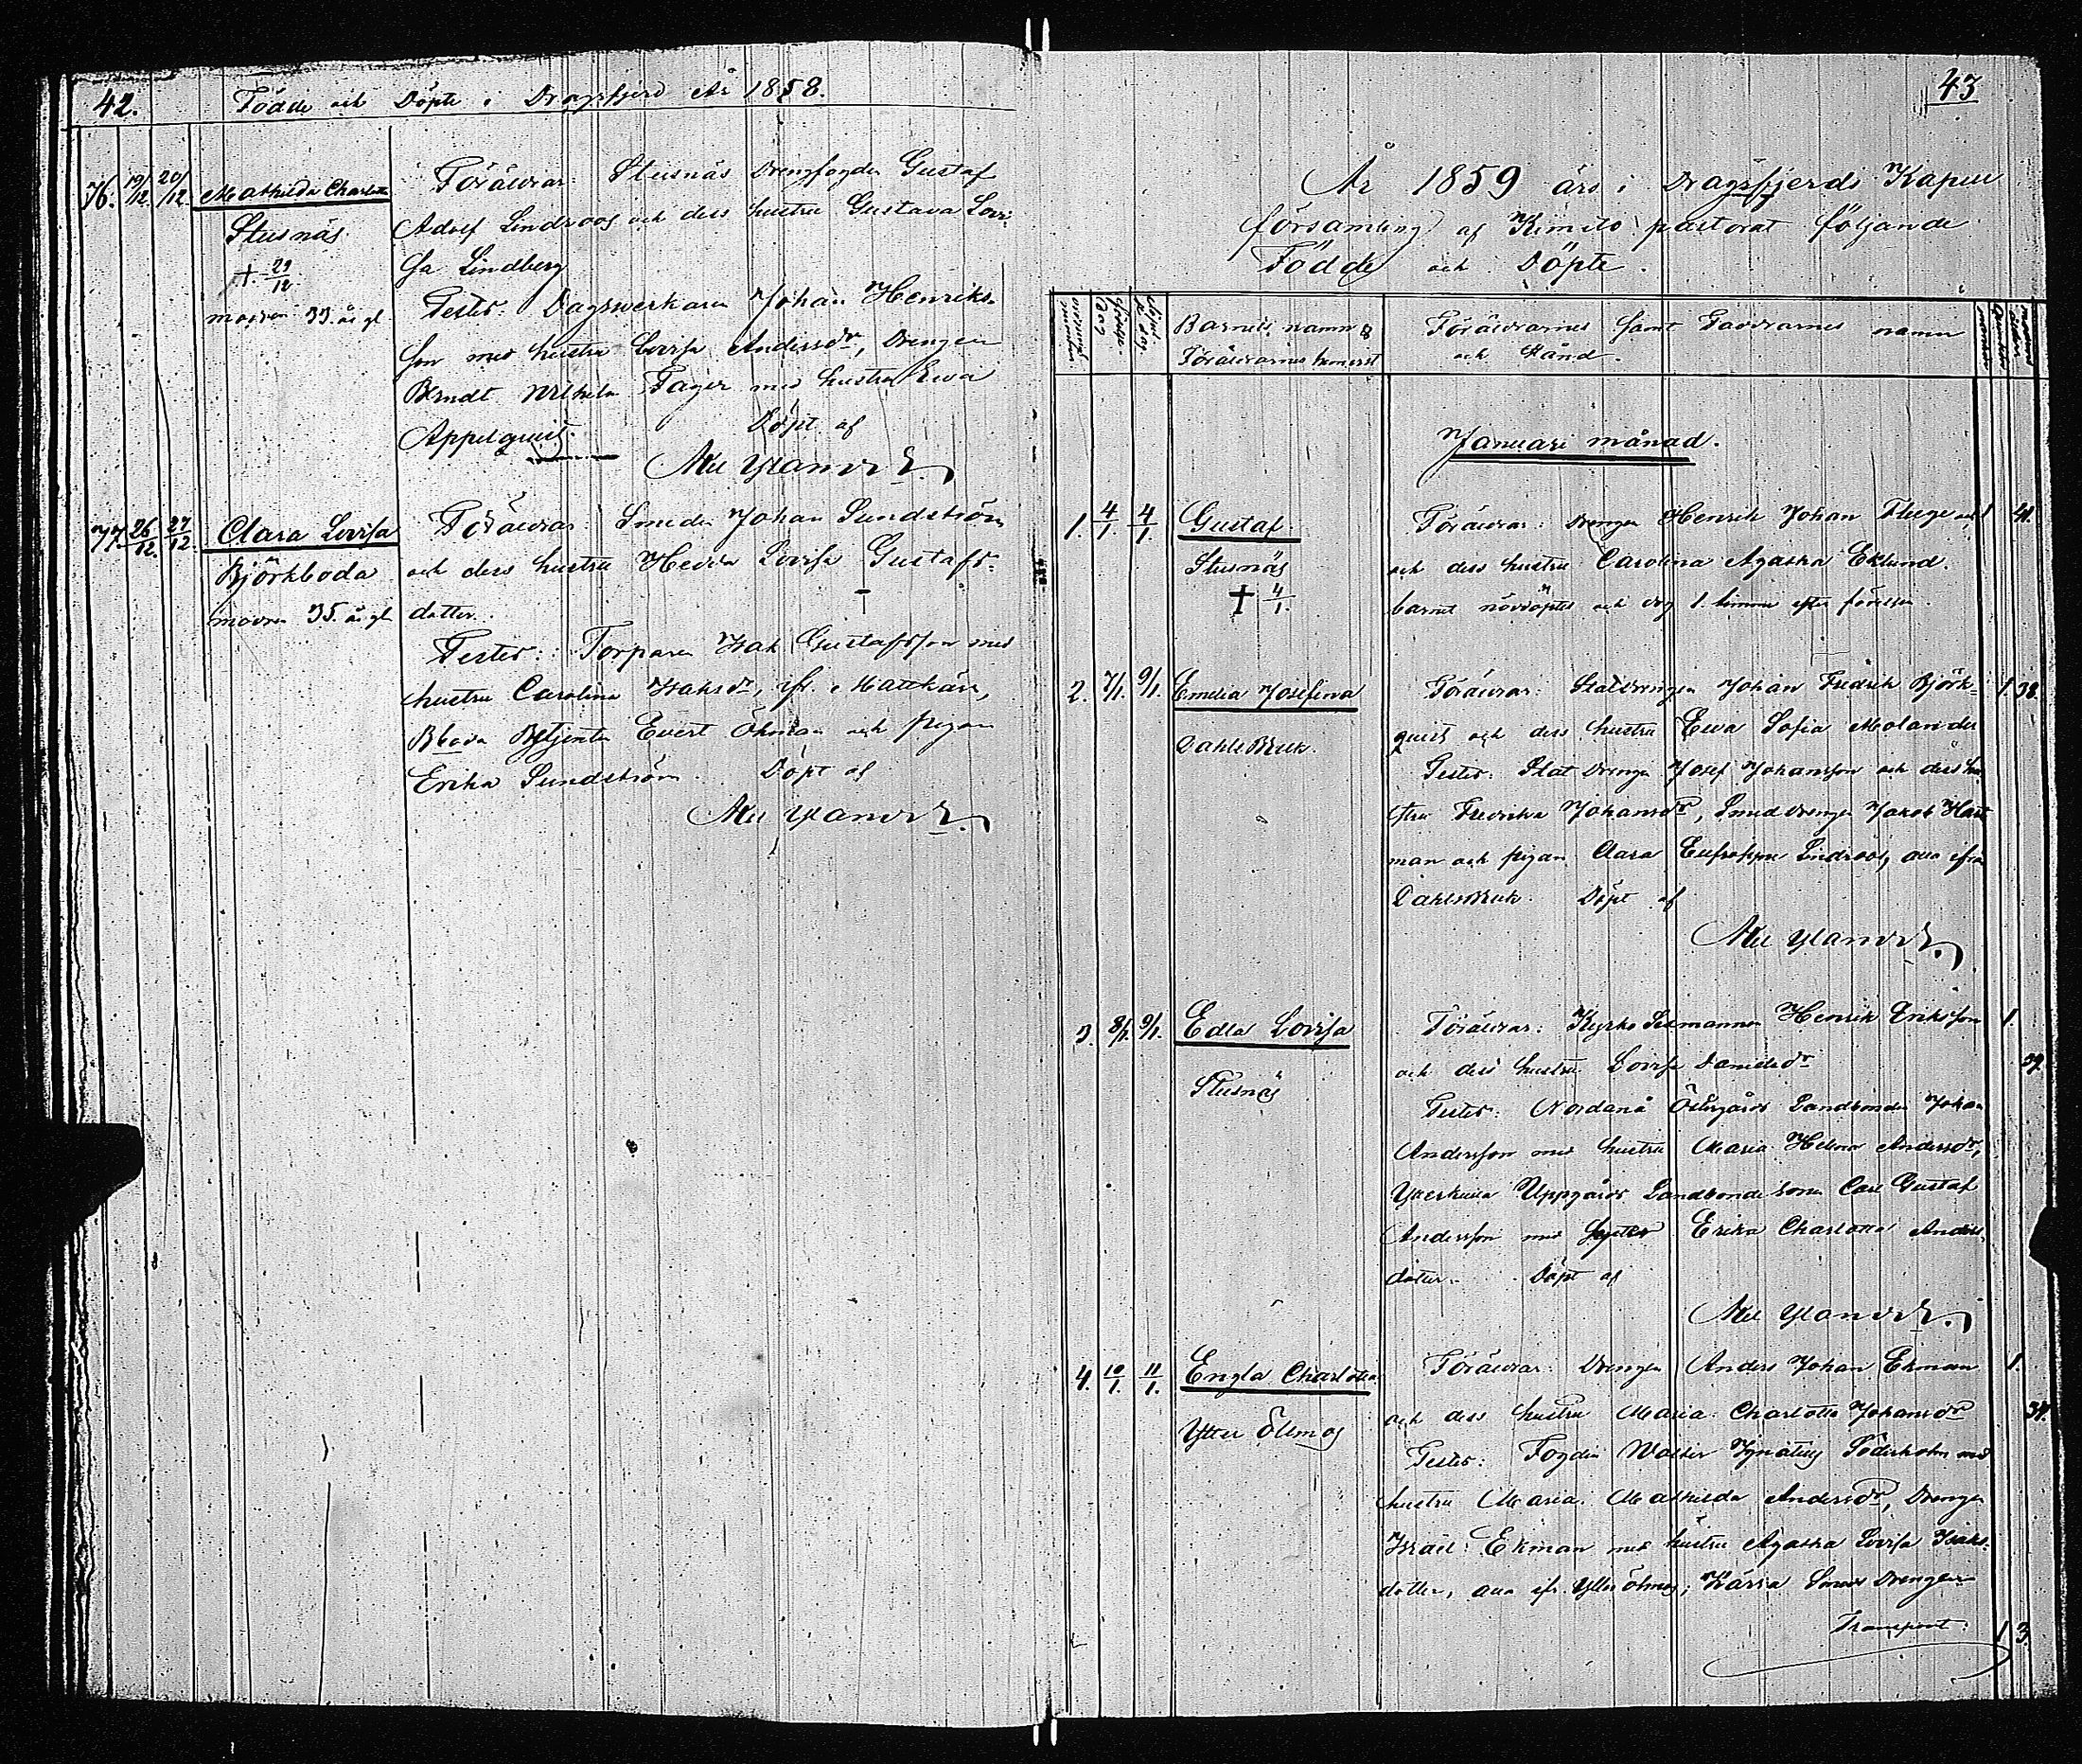 42. Födde och Döpte i Dragsfjerd År 1858.
76. 19/12. 20/12. Mathilda Charlotta
Stusnäs
† 29/12.
modren 33. år gl
Föräldrar: Stusnäs Drengfogden Gustaf
Adolf Lindroos och dess hustru Gustava Lovi-
sa Lindberg
Testes: Dagsverkaren Johan Henriks-
son med hustru Lovisa Andersdr, Drengen
Berndt Wilhelm Fager med hustru Ewa
Appelquist. Döpt af
77. 26/12. 27/12. Clara Lovisa
Björkboda
modren 35. år gl
Föräldrar: Smeden Johan Sundström
och dess hustru Hedda Lovisa Gustafs-
dotter.
Testes: Torparen Isak Gustafsson med
hustru Carolina Isaksdr, ifr. Mattkärr,
Bboda Betjenten Evert Öhman och pigan
Erika Sundström. Döpt af
43
År 1859 äro i Dragsfjerds Kapell
församling af Kimito pastorat följande
Födde och Döpte.
Barnets namn &
Föräldrarnes hemvist
Föräldrarnes samt Faddrarnes namn
och Stånd.
Januari månad.
1. 4/1. 4/1. Gustaf.
Stusnäs
† 4/1.
Föräldrar: Drengen Henrik Johan 1 41.
och dess hustru Carolina Agatha Eklund.
barnet nöddöptes och dog 1. timme efter förelsen.
2. 7/1. 9/1. Emelia Josefina
Dahls Bruk.
Föräldrar: Statdrengen Johan Fredrik Björk- 1. 38.
quist och dess hustru Ewa Sofia Molander
Testes: Stat Drengen Josef Johansson och dess hu-
stru Fredrika Johansdr, Smeddrengen Jakob Hart
man och pigan Clara Eufrosyne Lindroos, alla ifrån
Dahlsbruk. Döpt af
3. 8/1. 9/1. Edla Lovisa
Stusnäs
Föräldrar: Kyrko Sexmannen Henrik Eriksson 1.
och dess hustru Lovisa Danielsdr 39.
Testes: Nordanå Östergårds Landbonden Johan
Andersson med hustru Maria Helena Andersdr,
Uppgårds Landbonde sonen Carl Gustaf
Andersson med syster Erika Charlotta Anders-
dotter. Döpt af
4. 10/1. 11/1. Engla Charlotta
Ytter Ölmos
Föräldrar: Drengen Anders Johan Ekman 1.
och dess hustru Maria Charlotta Johansdr 34.
Testes: Fogden Walter Ignatius Söderholm med
hustru Maria Mathilda Andersdr, Drengen
Israel Ekman med hustru Agatha Lovisa Isaks-
dotter, alla ifr. Ytterölmos, Kärra Smeds Drengen
Transport: 1 3.